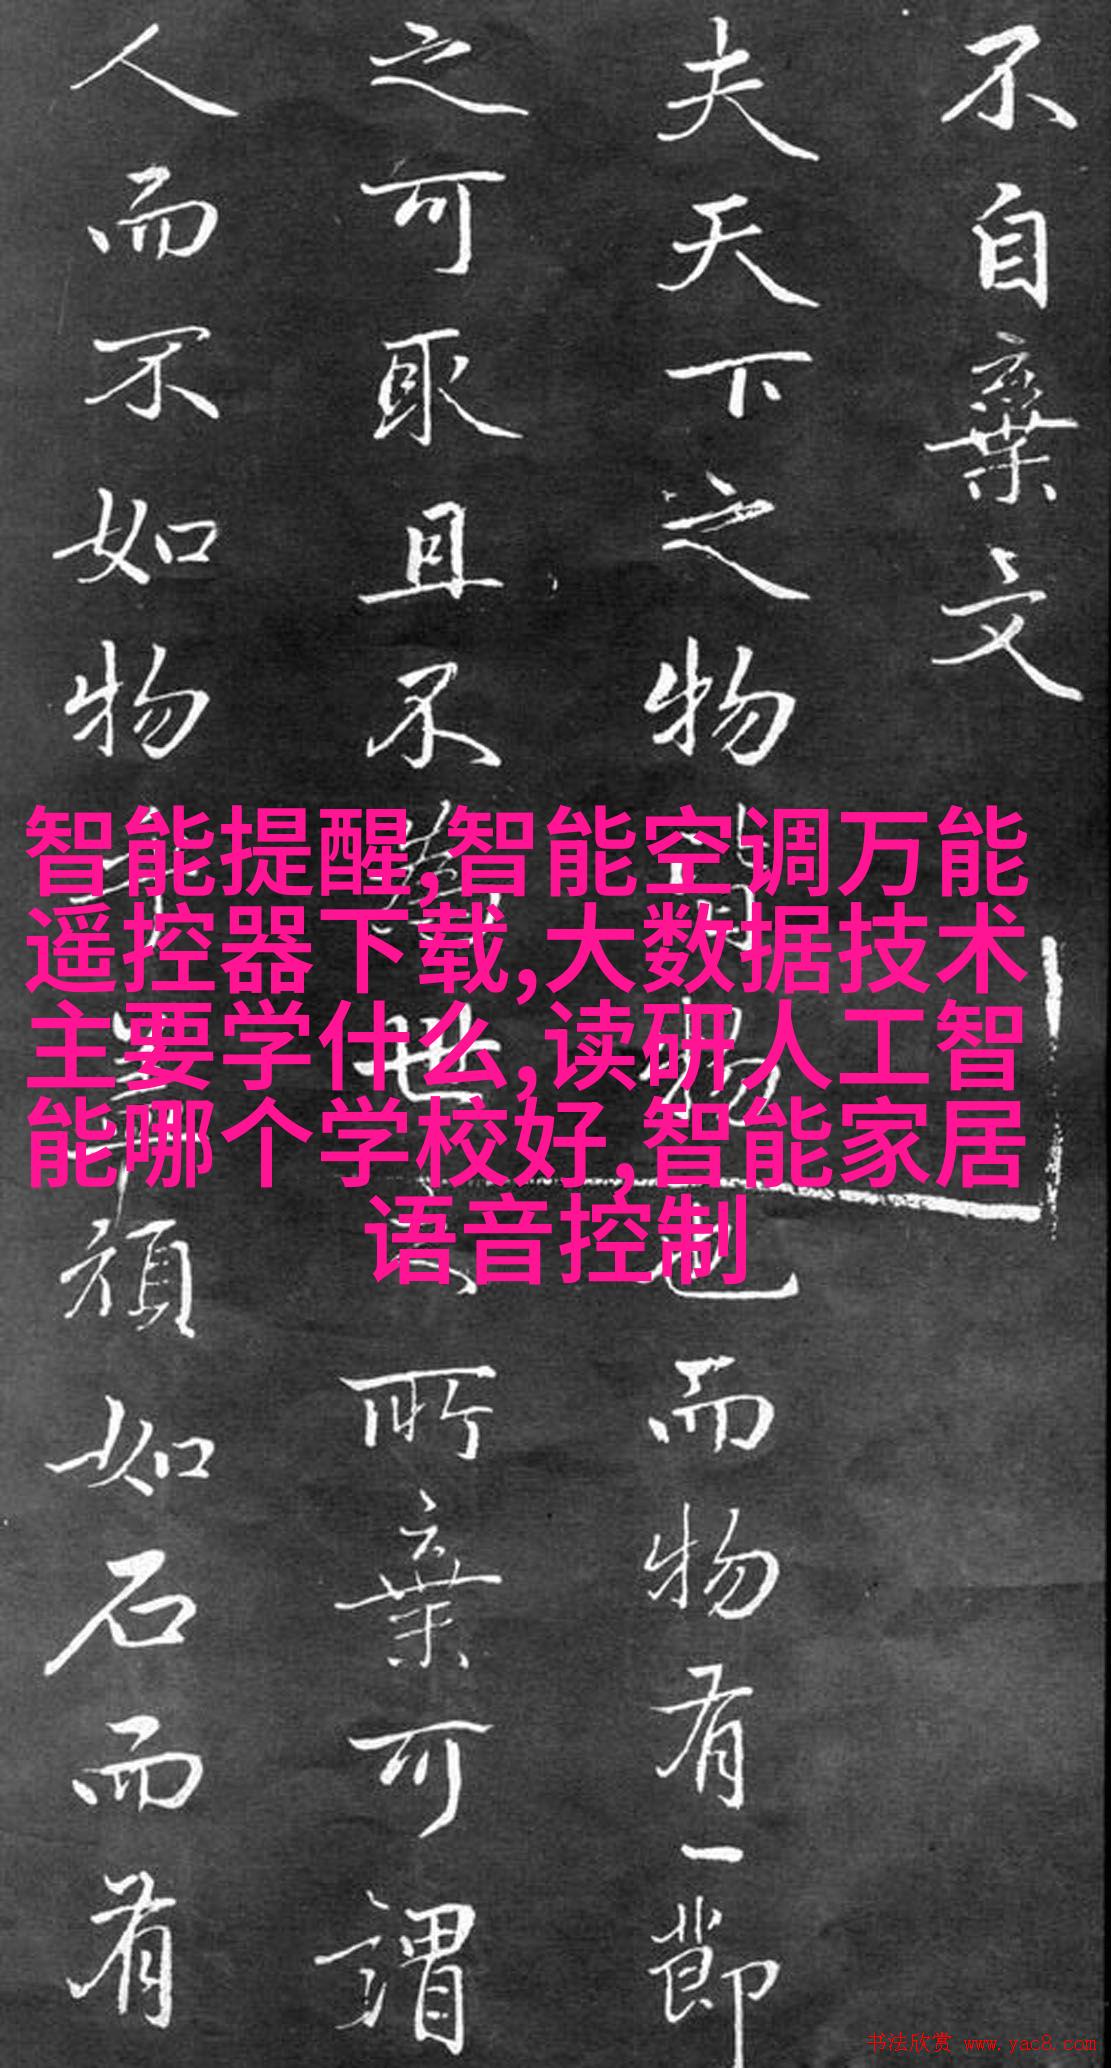 不自棄文
夫天下之物皆物也而物有一節
之可取且不為世之所棄可謂
人而不如物乎蓋頑如石而有
智能提醒,智能空调万能
遥控器下载,大数据技术
主要学什么,读研人工智
能哪个学校好,智能家居
语音控制
书法欣赏 www.yac8.com